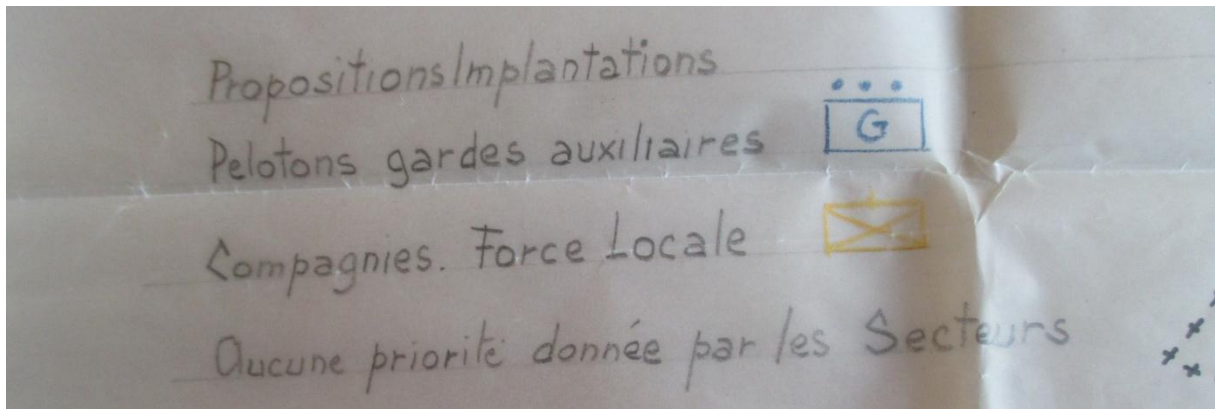 Propositions Implantations
Pelotons gardes auxiliaires G
Compagnies. Force Locale
Aucune priorité donnée par les Secteurs